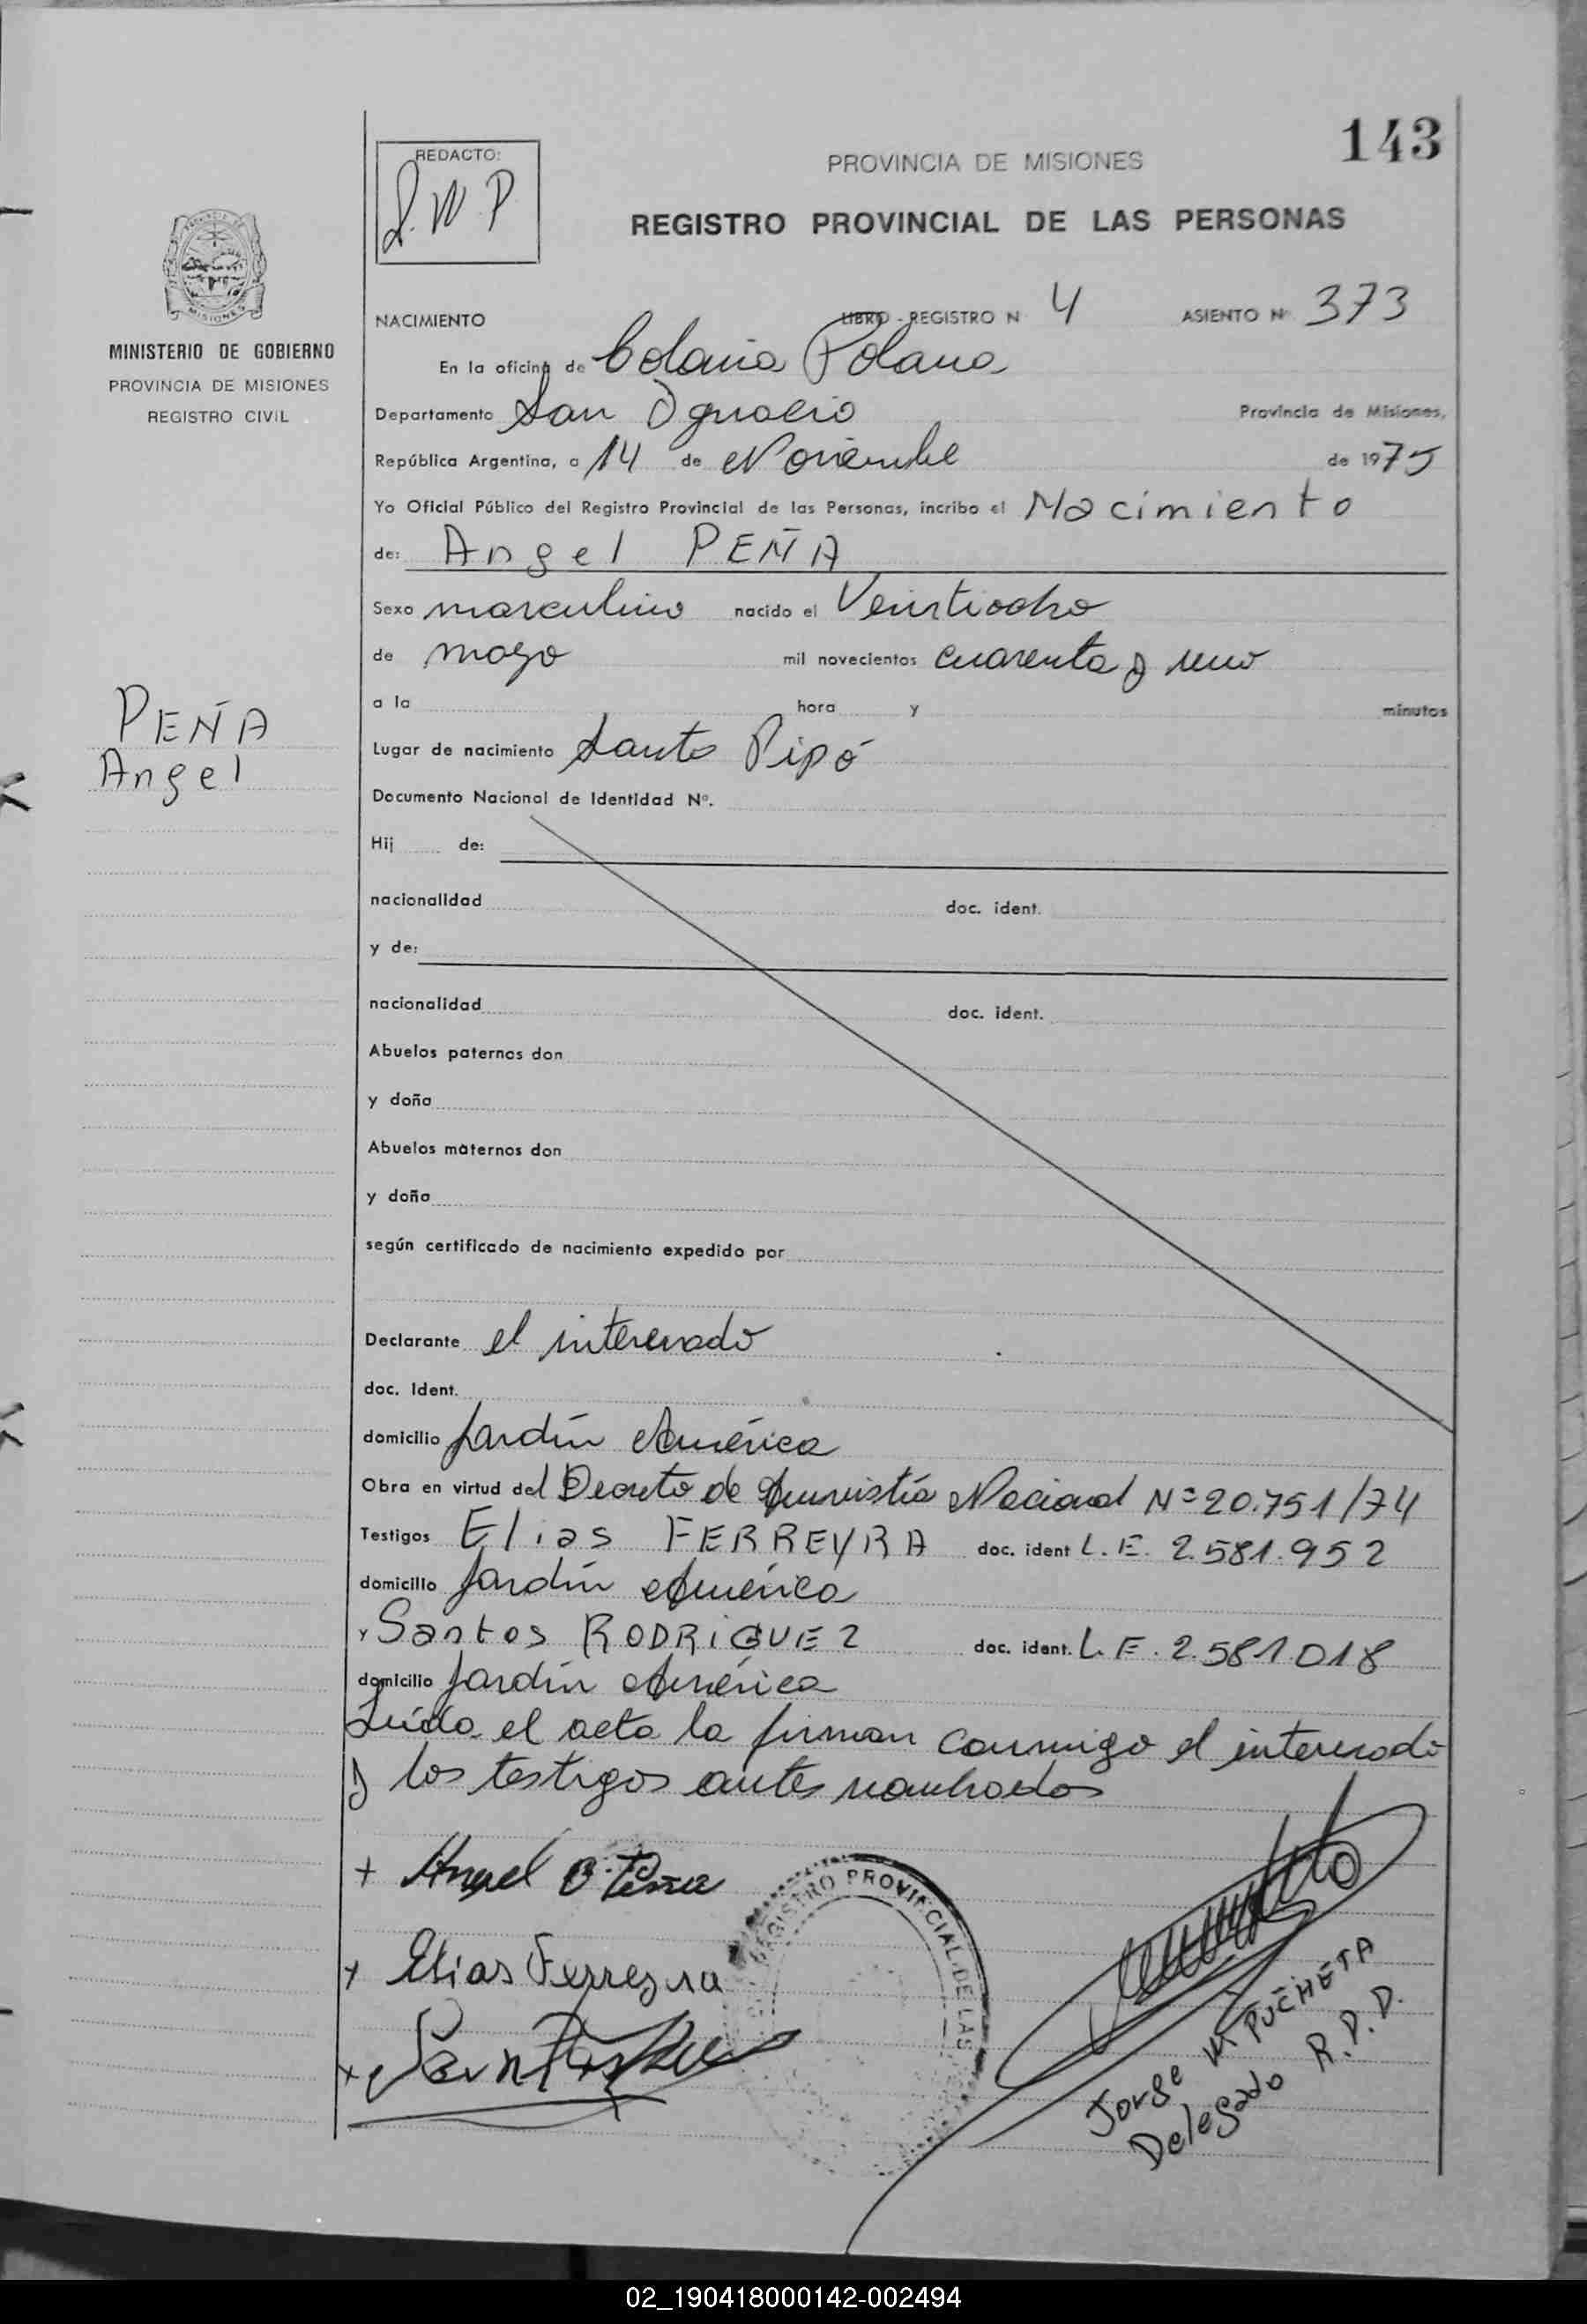 143
REDACTO:
J.W.P
PROVINCIA DE MISIONES
REGISTRO PROVINCIAL DE LAS PERSONAS
MISIONES
MINISTERIO DE GOBIERNO
PROVINCIA DE MISIONES
REGISTRO CIVIL
NACIMIENTO LIBRO - REGISTRO N 4 ASIENTO Nº 373
En la oficina de Colonia Polana
Departamento San Ignacio Provincia de Misiones,
República Argentina, a 14 de Noviembre de 1975
Yo Oficial Público del Registro Provincial de las Personas, incribo el Nacimiento
de: Angel PEÑA
Sexo masculino nacido el Veintiocho
de mayo mil novecientos cuarenta y uno
a la hora y minutos
PEÑA
Angel
Lugar de nacimiento Santo Pipó
Documento Nacional de Identidad Nº.
Hij de:
nacionalidad doc. ident.
y de:
nacionalidad doc. ident.
Abuelos paternos don
y doña
Abuelos maternos don
y doña
según certificado de nacimiento expedido por
Declarante el interesado
doc. Ident.
domicilio Jardín América
Obra en virtud del Decreto de Amnistía Nacional Nº 20.751/74
Testigos Elias FERREYRA doc. ident L.E. 2.581.952
domicilio Jardín América
y Santos RODRIGUEZ doc. ident. L.E. 2.581.018
domicilio Jardín América
Leída el acta la firman conmigo el interesado
y los testigos antes nombrados
+ Angel O. Peña
+ Elias Ferreyra
REGISTRO PROVINCIAL DE LAS
Jorge W PUCHETA
Delegado R.P.P.
02_190418000142-002494